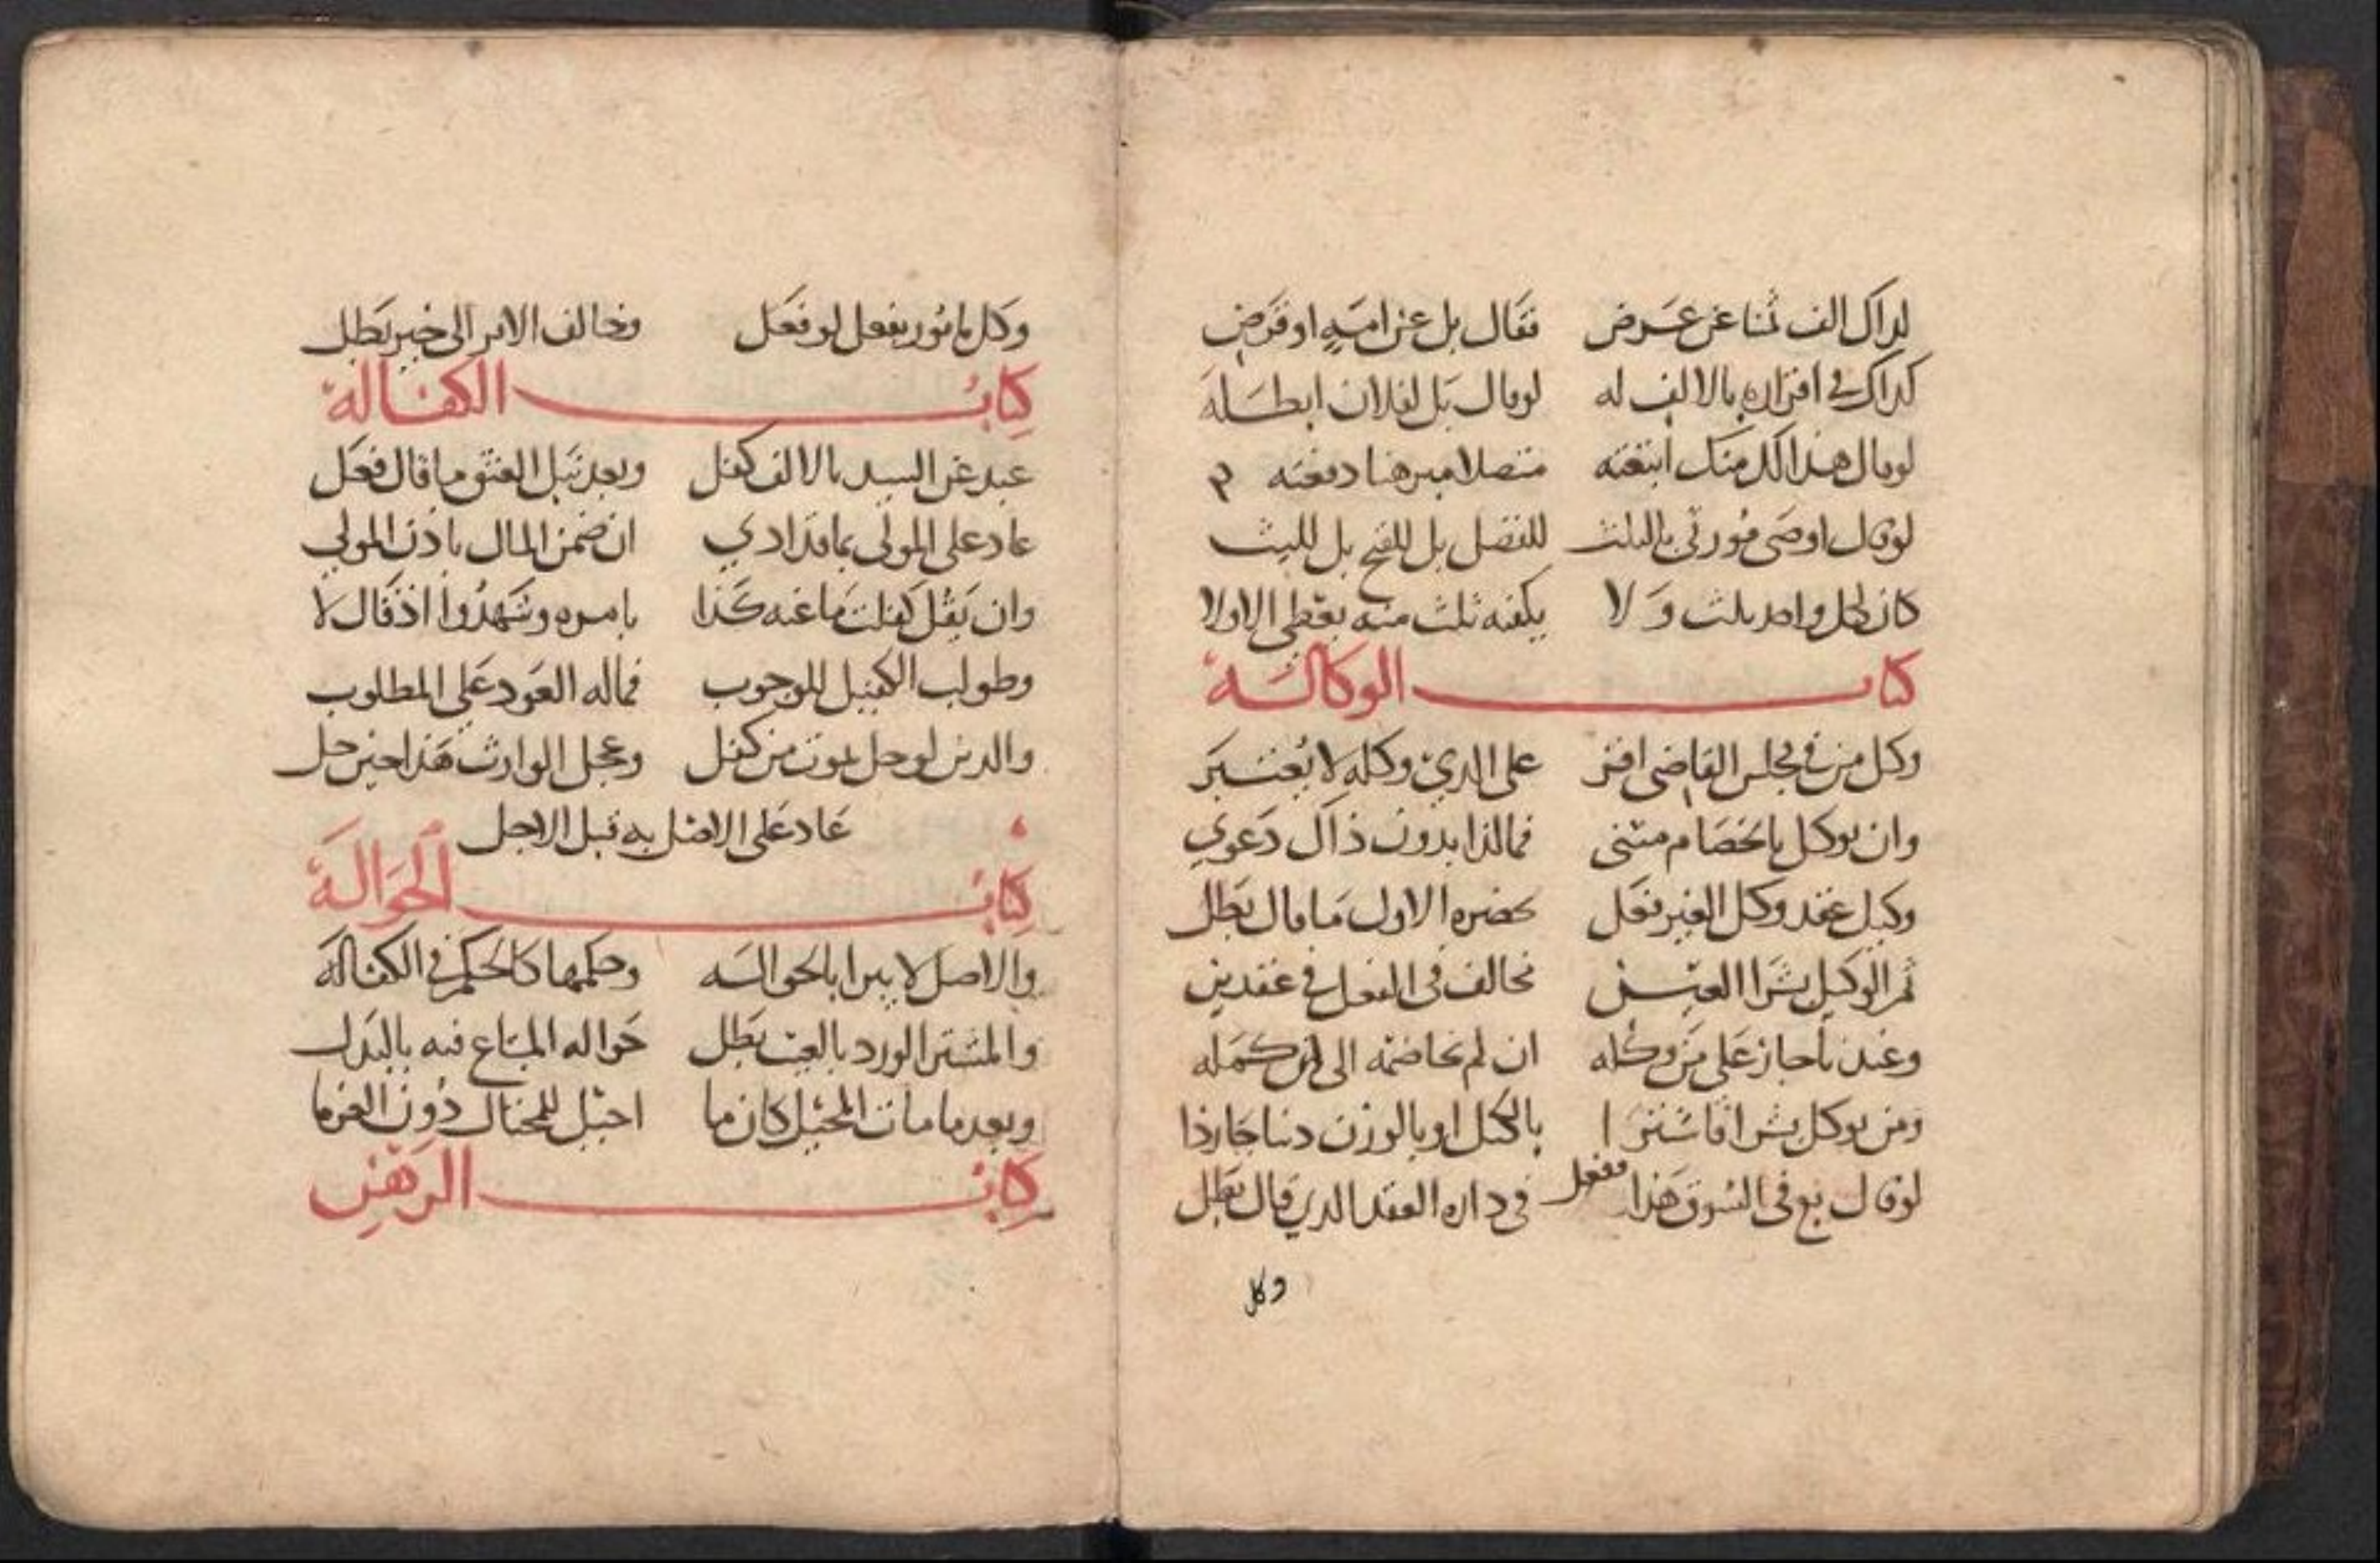 لذاك الف ثمنا عن عرض فقال بل عن امة او قرض
كذاك في اقراره بالالف له لو قال بل لفلان ابطله
لو قال هذا الكل منك ابتعته متصلا دفعته
لو قال اوصى مورثي بالثلث للفضل بل للفتح بل لليث
كان لكل واحد ثلث و لا يكفيه ثلث منه يعطى الاولا
كتاب الوكالة
وكل من في مجلس القاضي اقر على الذي وكله لا يعتبر
وان يوكل بالخصام متني فمالذا بدون ذاك دعوي
وكيل عقد وكل الغير فعل بحضره الاول ما قال بطل
ثم الوكيل بشرا العين تخالف في الفعل في عقدين
وعند نا جاز على من وكله ان لم تخاصمه الى ان كمله
ومن يوكل بشرا فاشترا بالكيل او بالوزن
لو قال بع في السوق هذا ففعل في داره العقد الذي قال بطل
وكل
وكل مامور بفعل لو فعل وخالف الامر الى خير بطل
كتاب الكفالة
عبد عن السيد بالالف كفل وبعد قبل العتق ما قال فعل
عاد على المولى بما قد ادي ان ضمن المال باذن المولي
وان يقل كفلت ما عنه كذا بامره وشهدوا اذ قال لا
وطولب الكفيل للوجوب فماله العود على المطلوب
والدين لو حل بموت من كفل وعجل الوارث هذا حين حل
عاد على الاصل به قبل الاجل
كتاب الحوالة
والاصل لا يبرا بالحواله وحكمها كالحكم في الكفالة
والمشتر الورد بالعيب بطل حواله المبتاع فيه بالبدل
وبعد ما مات المحيل كان ما احيل للمحتال دون الغرما
كتاب الرهن